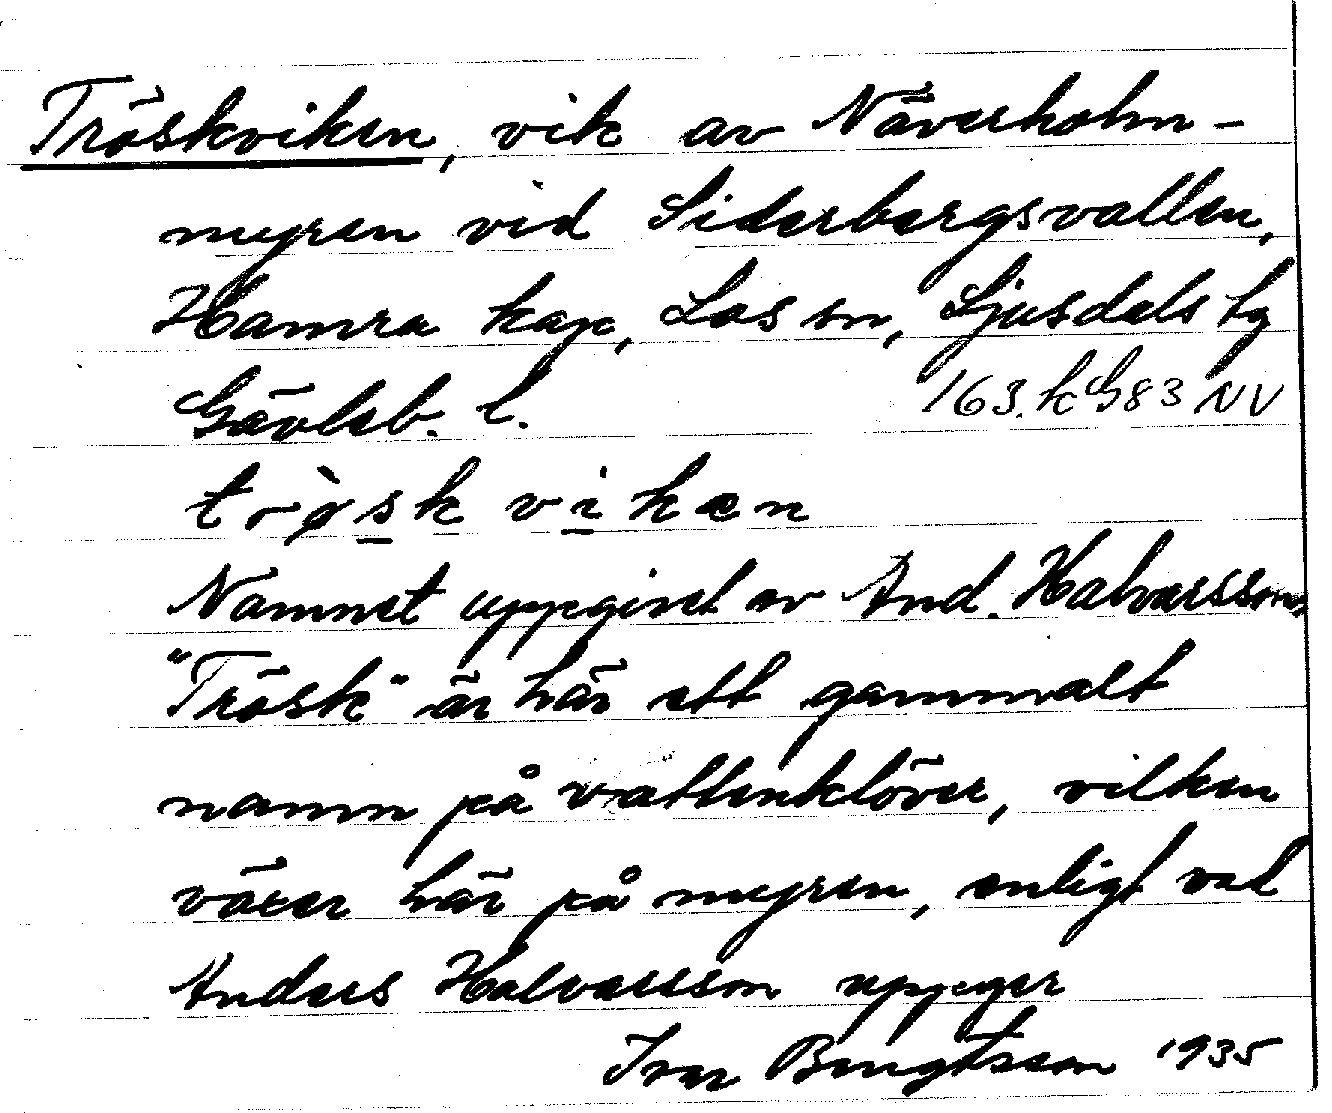 Tröskviken, vik av Näverholm-
myren vid Siderbergsvallen,
Hamra kap, Los sn, Ljusdals tg
Gävleb. l. 163. k G83 NV
trø̀sk viken
Namnet uppgivet av And. Halvarsson.
"Trösk" är här ett gammalt
namn på vattenklöver, vilken
växer här på myren, enligt vad
Anders Halvarsson uppger
Ivar Bengtsson 1935